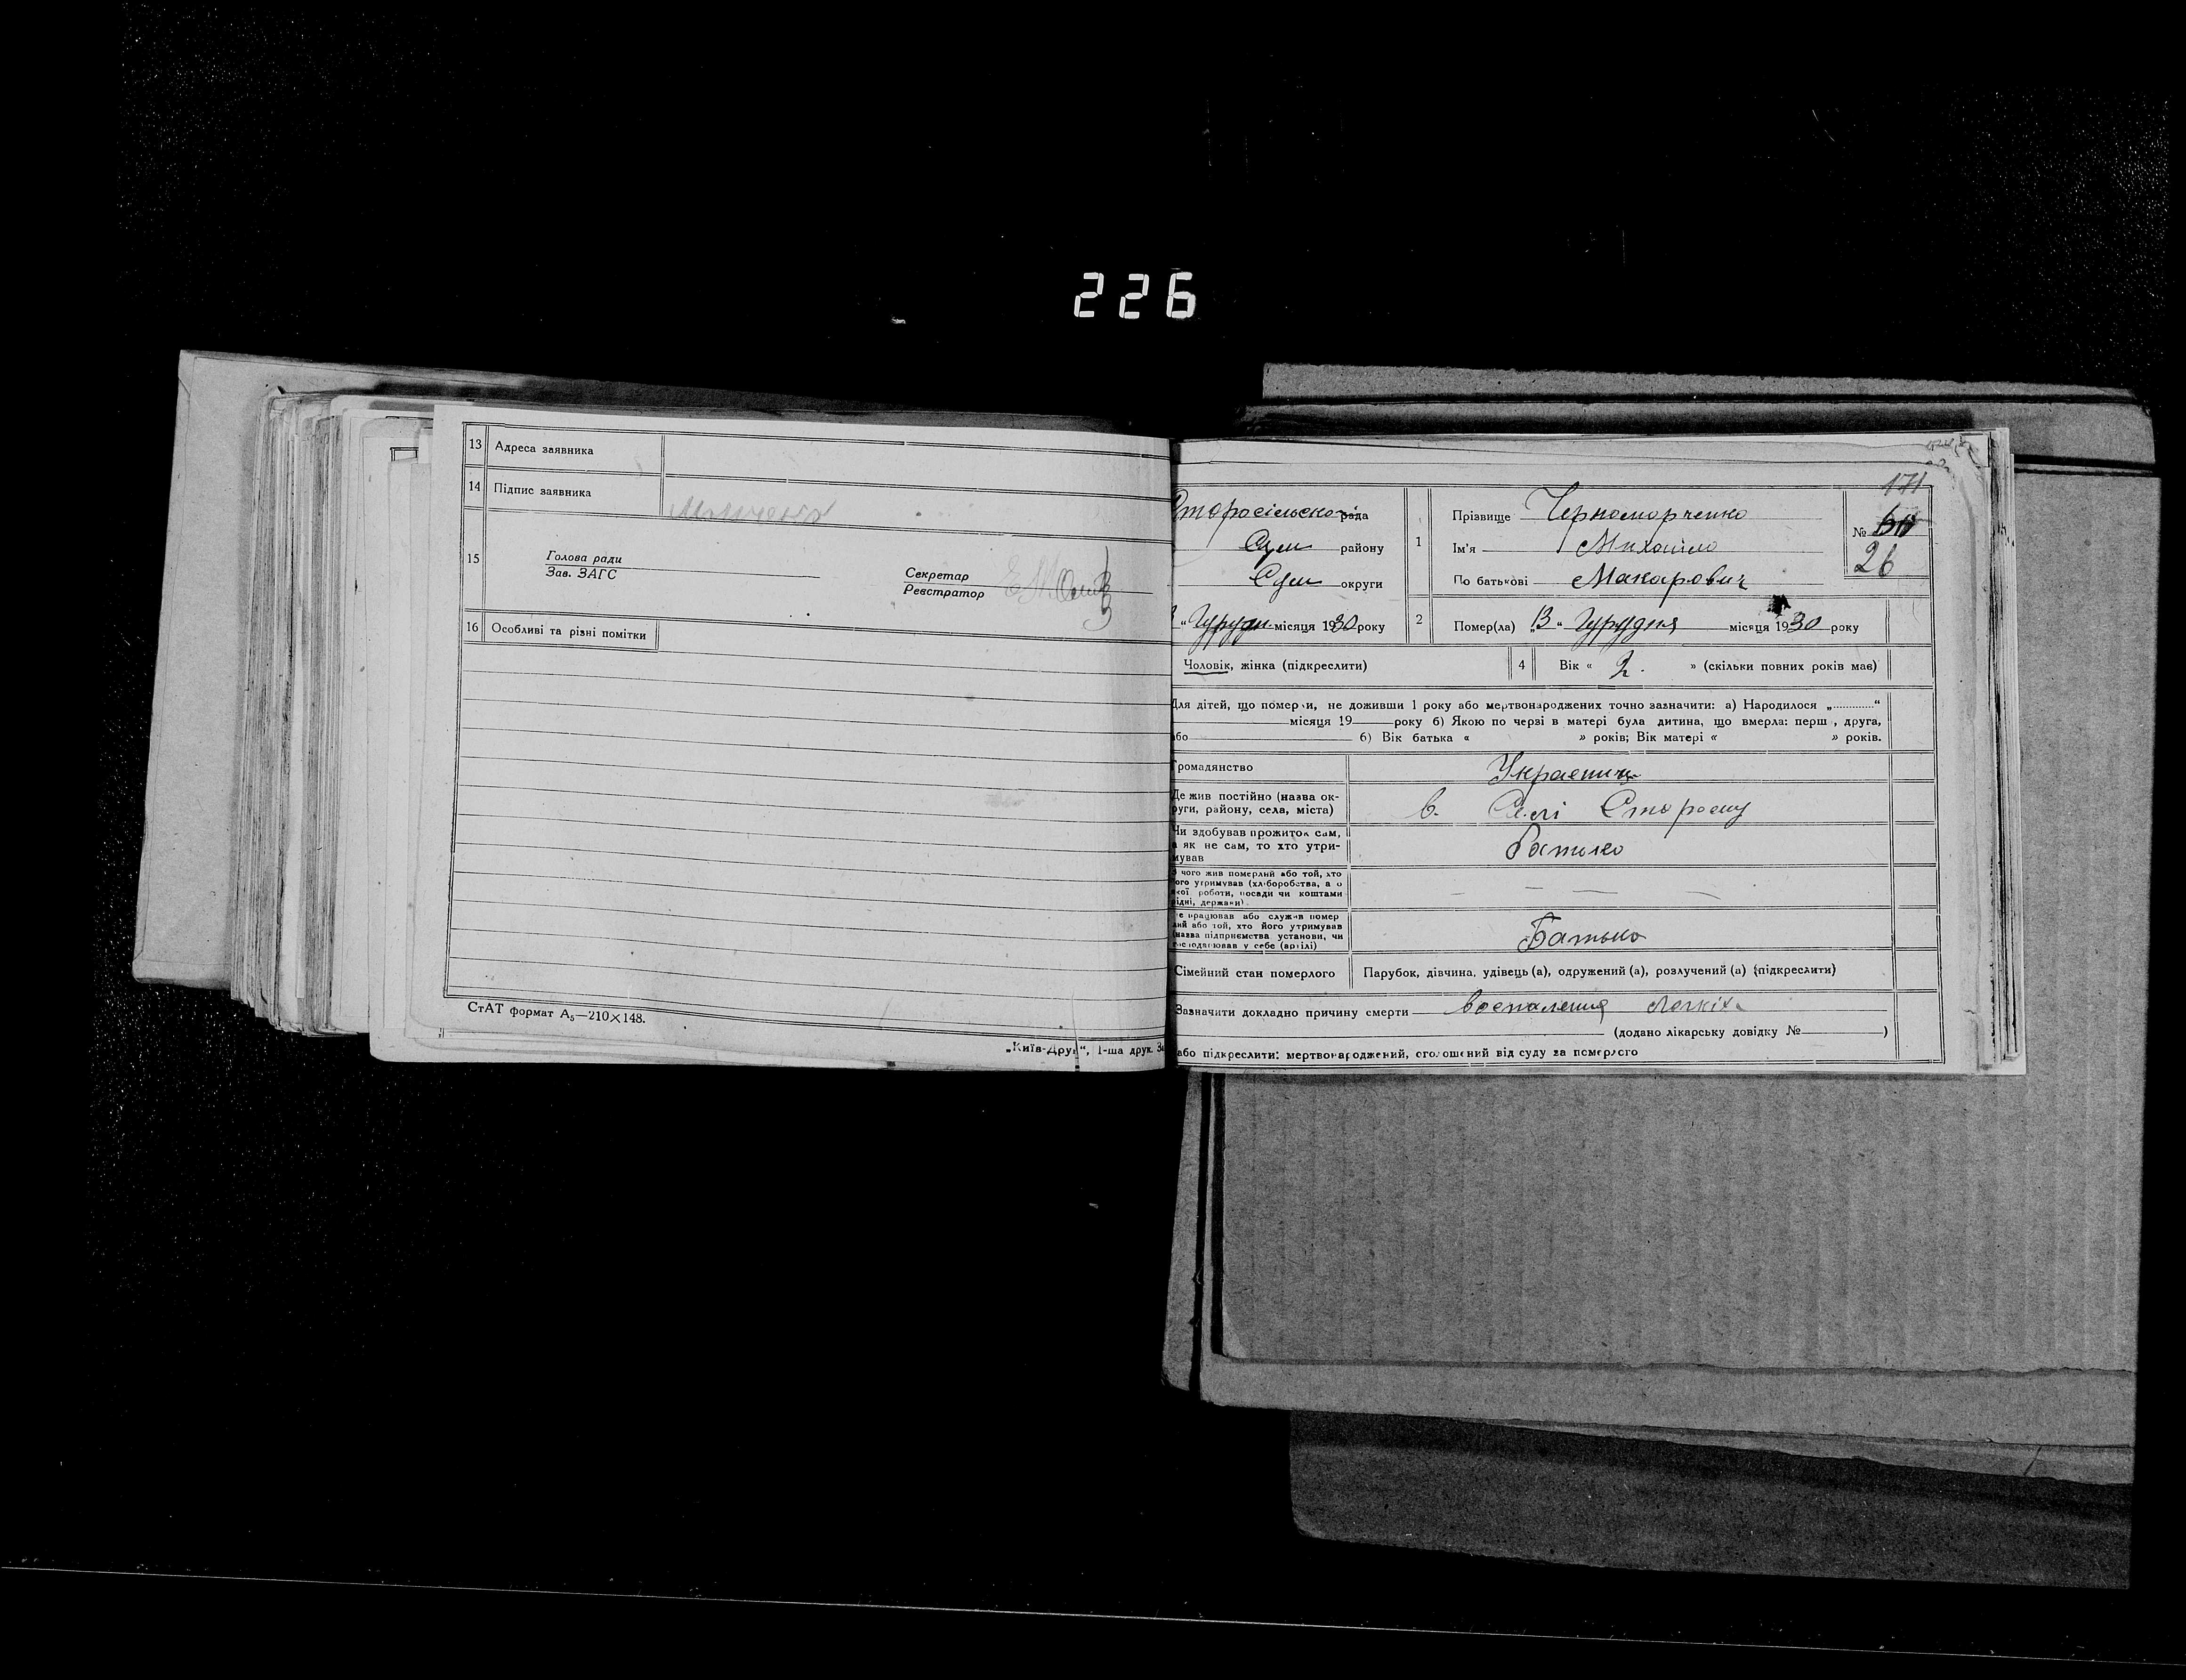 226
13 Адреса заявника
14 Підпис заявника
15
Голова ради
Зав. ЗАГС
Секретар
Реєстратор
16 Особливі та різні помітки
СтАТ формат А5—210×148.
„Київ-Друк“, 1-ша друк. За
171
Старосільсько рада
Сум району
Сум округи
місяця 1930 року
1
Прізвище Черноморченко
Ім'я Михайло
По батькові Макарович
№
26
2 Помер(ла) „13“ Грудня місяця 1930 року
Чоловік, жінка (підкреслити)
4 Вік « 2. » (скільки повних років має)
Для дітей, що померли, не доживши 1 року або мертвонароджених точно зазначити: а) Народилося „............“
місяця 19 року б) Якою по черзі в матері була дитина, що вмерла: перш , друга,
або б) Вік батька « » років; Вік матері « » років.
Громадянство Украенич
Де жив постійно (назва ок-
руги, району, села, міста) в. Селі Старому
Чи здобував прожиток сам,
а як не сам, то хто утри-
мував Батько
З чого жив померлий або той, хто
його утримував (хліборобства, а о
якої роботи, посади чи коштами
рідні, держави). — — —
Де працював або служив помер
лий або той, хто його утримував
(назва підприємства установи, чи
господарював у себе (артілі) Батько
Сімейний стан померлого Парубок, дівчина, удівець (а), одружений (а), розлучений (а) (підкреслити)
Зазначити докладно причину смерти воспаления легкіх
(додано лікарську довідку № )
або підкреслити: мертвонароджений, оголошений від суду за померлого